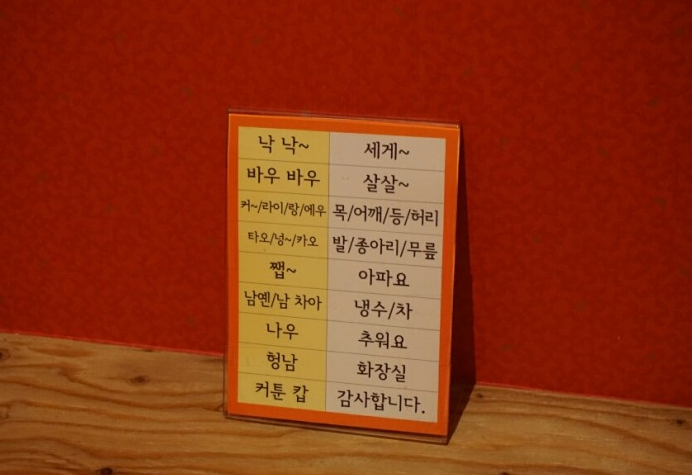 낙 낙~ 세게~
바우 바우 살살~
커~/라이/랑/에우 목/어깨/등/허리
타오/넝~/카오 발/종아리/무릎
쨉~ 아파요
남옌/남 차아 냉수/차
나우 추워요
헝남 화장실
커툰 캅 감사합니다.